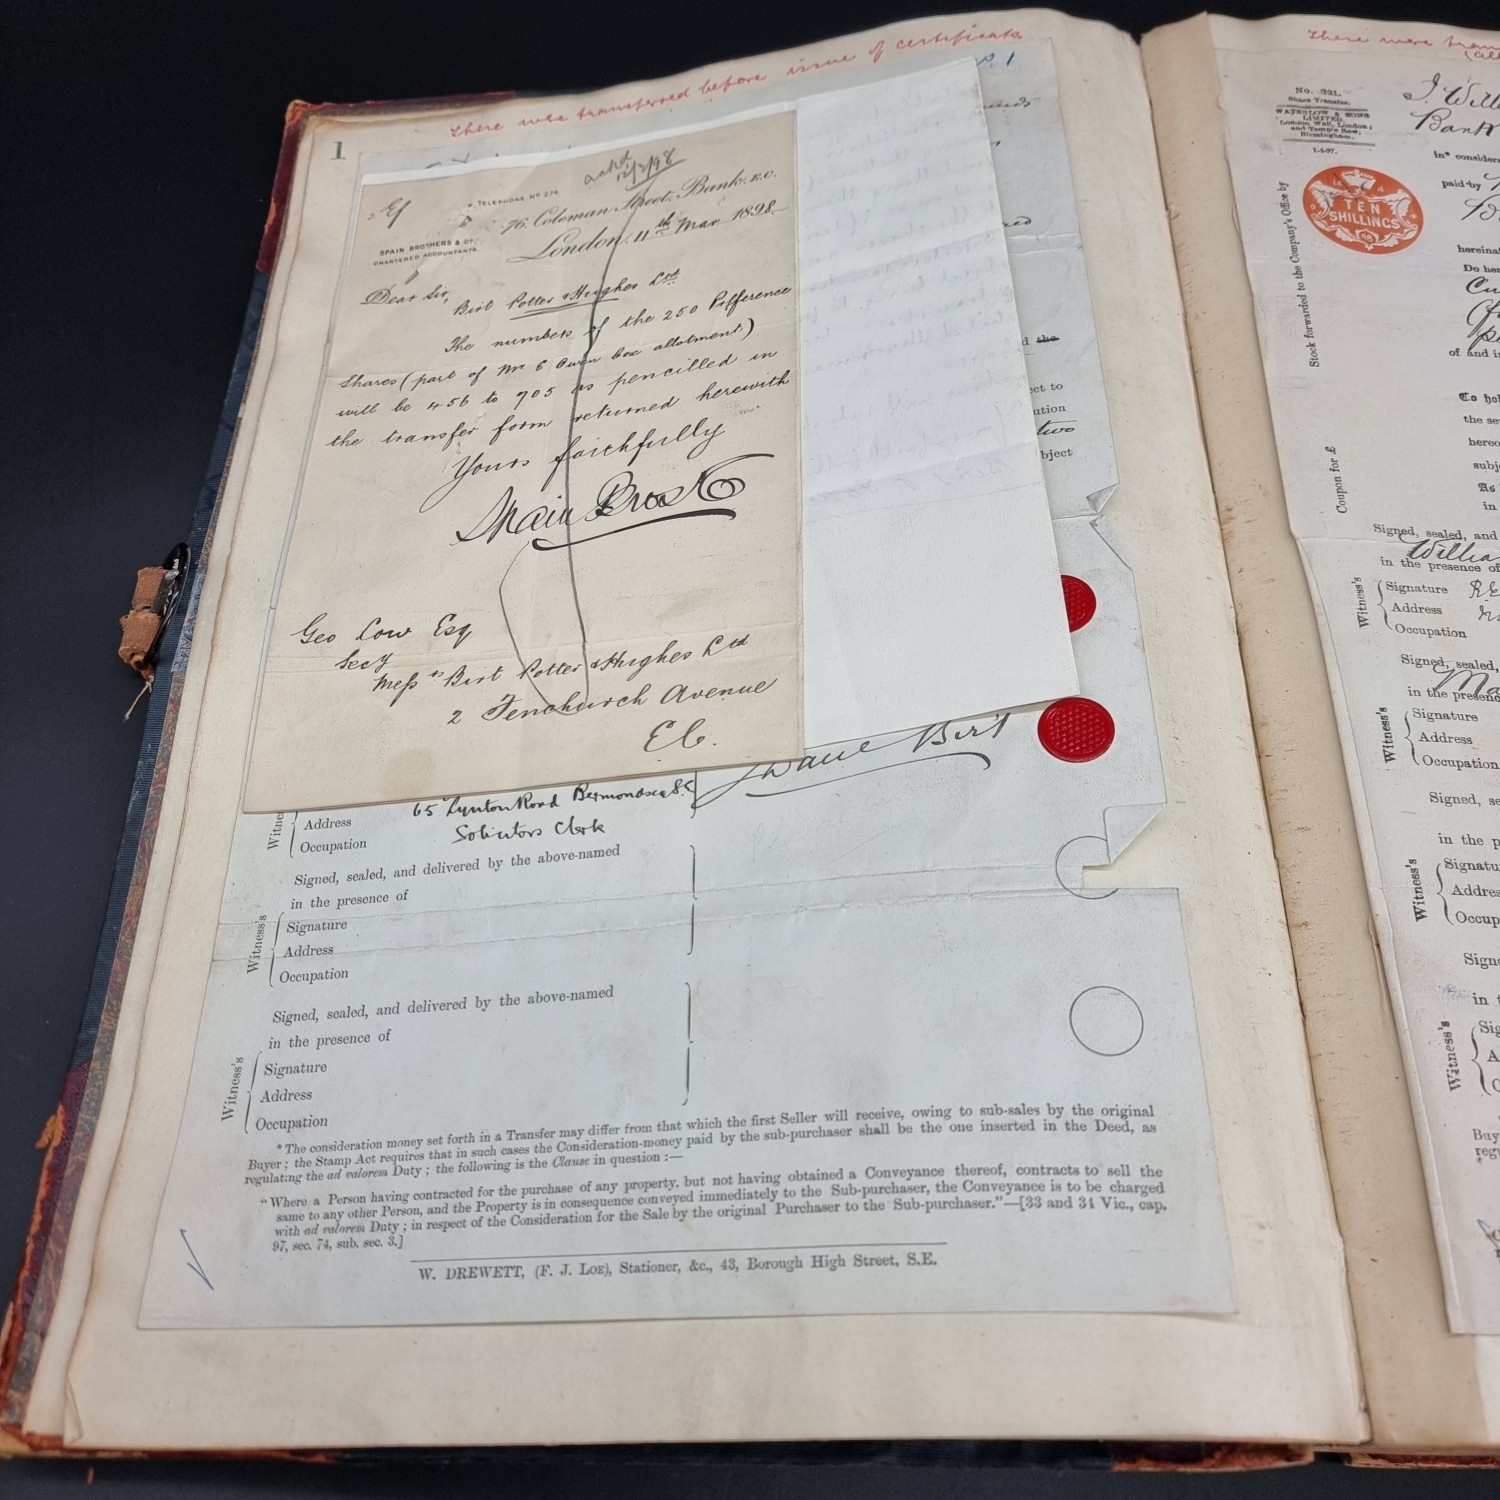 these were transferred before issue of certificate
1
No. 1
ackd
12/3/98
TELEPHONE No 274
76, Coleman Street, Bank, E.C.
SPAIN BROTHERS & Co.
CHARTERED ACCOUNTANTS.
London, 11th Mar 1898
Dear Sir,
Birt Potter & Hughes Ltd
The numbers of the 250 Preference
Shares (part of Mr
allotment)
will be 456 to 705 as pencilled in
the transfer form returned herewith
Yours faithfully
Spain Bros & Co
Geo Low Esq
Secy
Messrs Birt Potter & Hughes Ltd
2 Fenchurch Avenue
E C.
the
ect to
ution
two
bject
Birt
65 Lynton Road Bermondsey S.E
Witness's
Address
Occupation
Solicitors Clerk
Signed, sealed, and delivered by the above-named
in the presence of
Witness's
Signature
Address
Occupation
Signed, sealed, and delivered by the above-named
in the presence of
Witness's
Signature
Address
Occupation
* The consideration money set forth in a Transfer may differ from that which the first Seller will receive, owing to sub-sales by the original
Buyer; the Stamp Act requires that in such cases the Consideration-money paid by the sub-purchaser shall be the one inserted in the Deed, as
regulating the ad valorem Duty; the following is the Clause in question:—
"Where a Person having contracted for the purchase of any property, but not having obtained a Conveyance thereof, contracts to sell the
same to any other Person, and the Property is in consequence conveyed immediately to the Sub-purchaser, the Conveyance is to be charged
with ad valorem Duty; in respect of the Consideration for the Sale by the original Purchaser to the Sub-purchaser."—[33 and 34 Vic., cap,
97, sec. 74, sub. sec. 3.]
W. DREWETT, (F. J. LOE), Stationer, &c., 43, Borough High Street, S.E.
these were tran
No. 321.
Share Transfer.
WATERLOW & SONS
LIMITED,
London Wall, London;
and Temple Row,
Birmingham.
1-4-97.
I Will
Bank
in* consider
paid by
TEN
SHILLINGS
hereinaf
Do her
of and in
Stock forwarded to the Company's Office by
Coupon for £
To hol
the se
hereo
subj
As
in
Signed, sealed, and
Willia
in the presence of
Witness's
Signature
Address
Occupation
Signed, sealed,
Ma
in the presenc
Witness's
Signature
Address
Occupation
Signed, se
in the p
Witness's
Signatu
Addres
Occup
Signe
in t
Witness's
Sig
A
Buy
regu